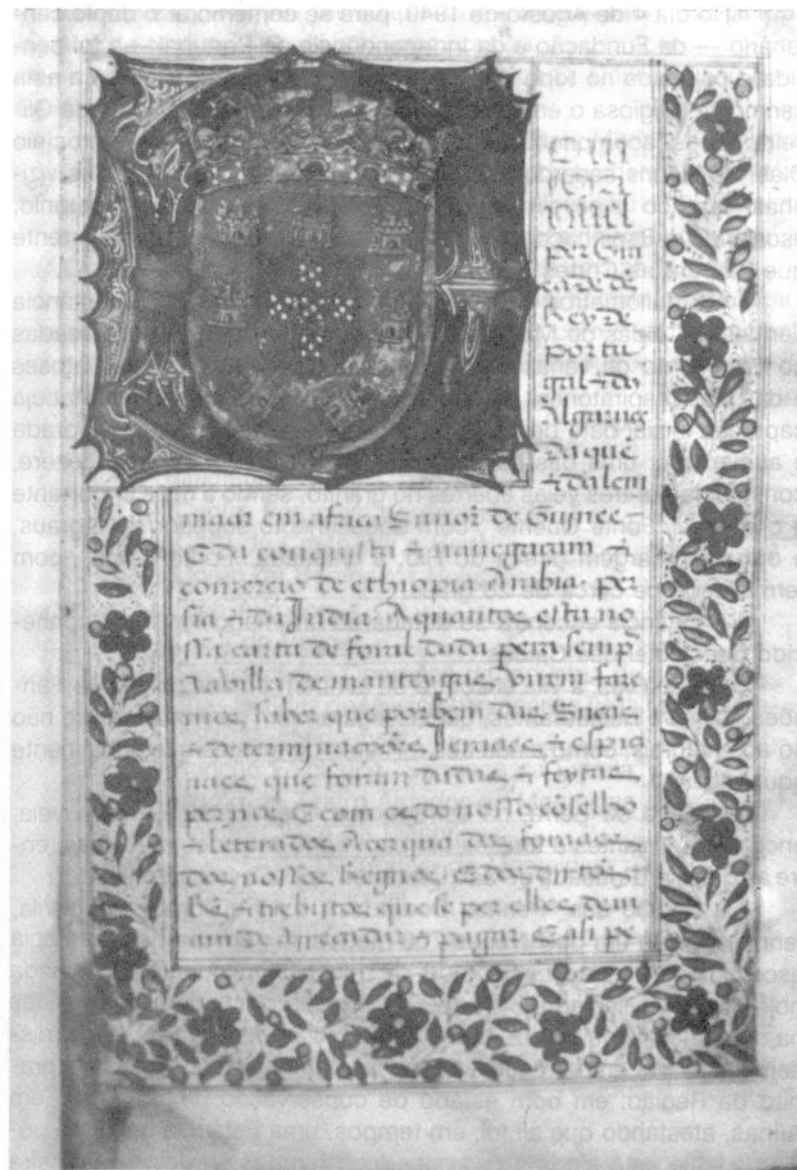 Dom
Ma
nuel
per Gra
ca de de
Rey de
portu
gal ⁊ do
Algarues
daquē
⁊ dalem
maar em africa Senor de Guinee
E da conquista ⁊ nauegacam ⁊
comercio de ethiopia Arabia per
sia ⁊ da India A quantos esta no
ssa carta de foral dada pera semp̄
A billa de manteygas birem faze
mos saber que por bem das
⁊ determjnacoões Jeraaes ⁊ espia
aaes que foram dadas ⁊ feytas
per nos E com os do nosso cõselho
⁊ leterados Acerqua dos foraaes
dos nossos Regnos E dos dirtos
⁊ trebutos que se per elles deui
am de Arrecadar ⁊ pagar E asi pe